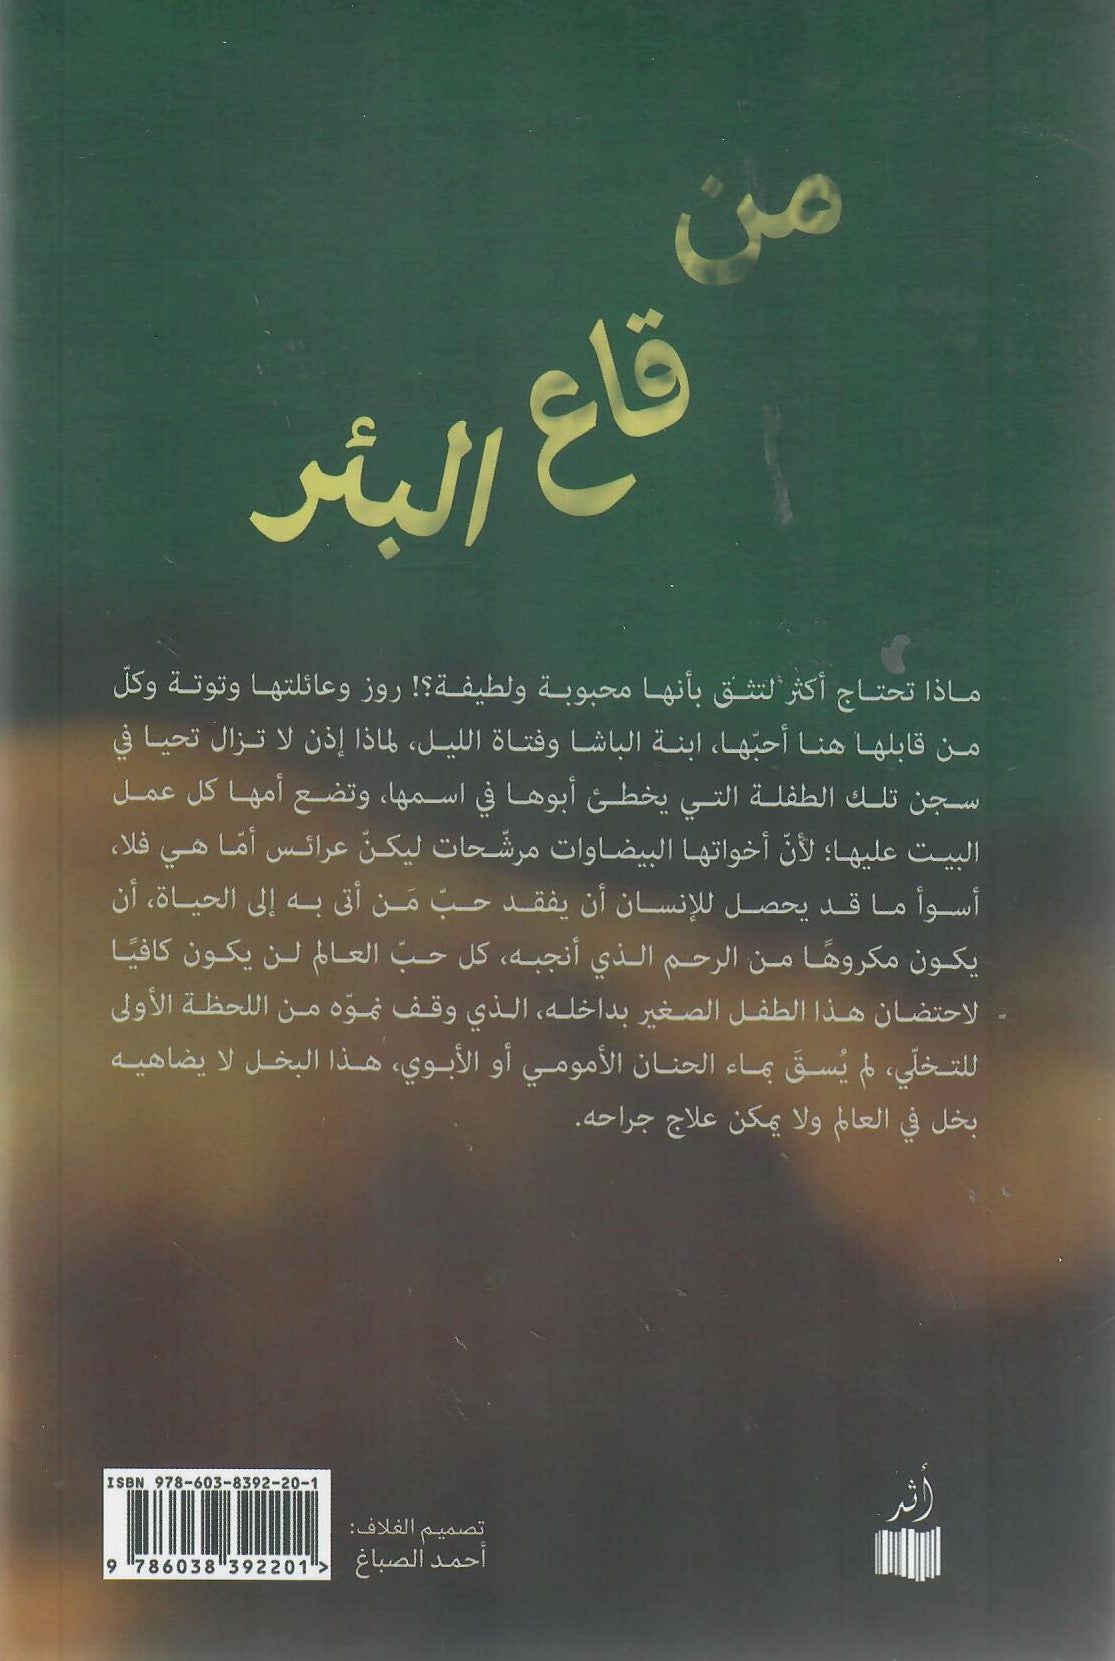 من
قاع
البئر
ماذا تحتاج أكثر لتثق بأنها محبوبة ولطيفة؟! روز وعائلتها وتوتة وكلّ
من قابلها هنا أحبّها، ابنة الباشا وفتاة الليل، لماذا إذن لا تزال تحيا في
سجن تلك الطفلة التي يخطئ أبوها في اسمها، وتضع أمها كل عمل
البيت عليها؛ لأنّ أخواتها البيضاوات مرشّحات ليكنّ عرائس أمّا هي فلا،
أسوأ ما قد يحصل للإنسان أن يفقد حبّ مَن أتى به إلى الحياة، أن
يكون مكروهًا من الرحم الذي أنجبه، كل حبّ العالم لن يكون كافيًا
لاحتضان هذا الطفل الصغير بداخله، الذي وقف نموّه من اللحظة الأولى
للتخلّي، لم يُسقَ بماء الحنان الأمومي أو الأبوي، هذا البخل لا يضاهيه
بخل في العالم ولا يمكن علاج جراحه.
أثر
تصميم الغلاف:
أحمد الصباغ
ISBN 978-603-8392-20-1
9 786038 392201 >